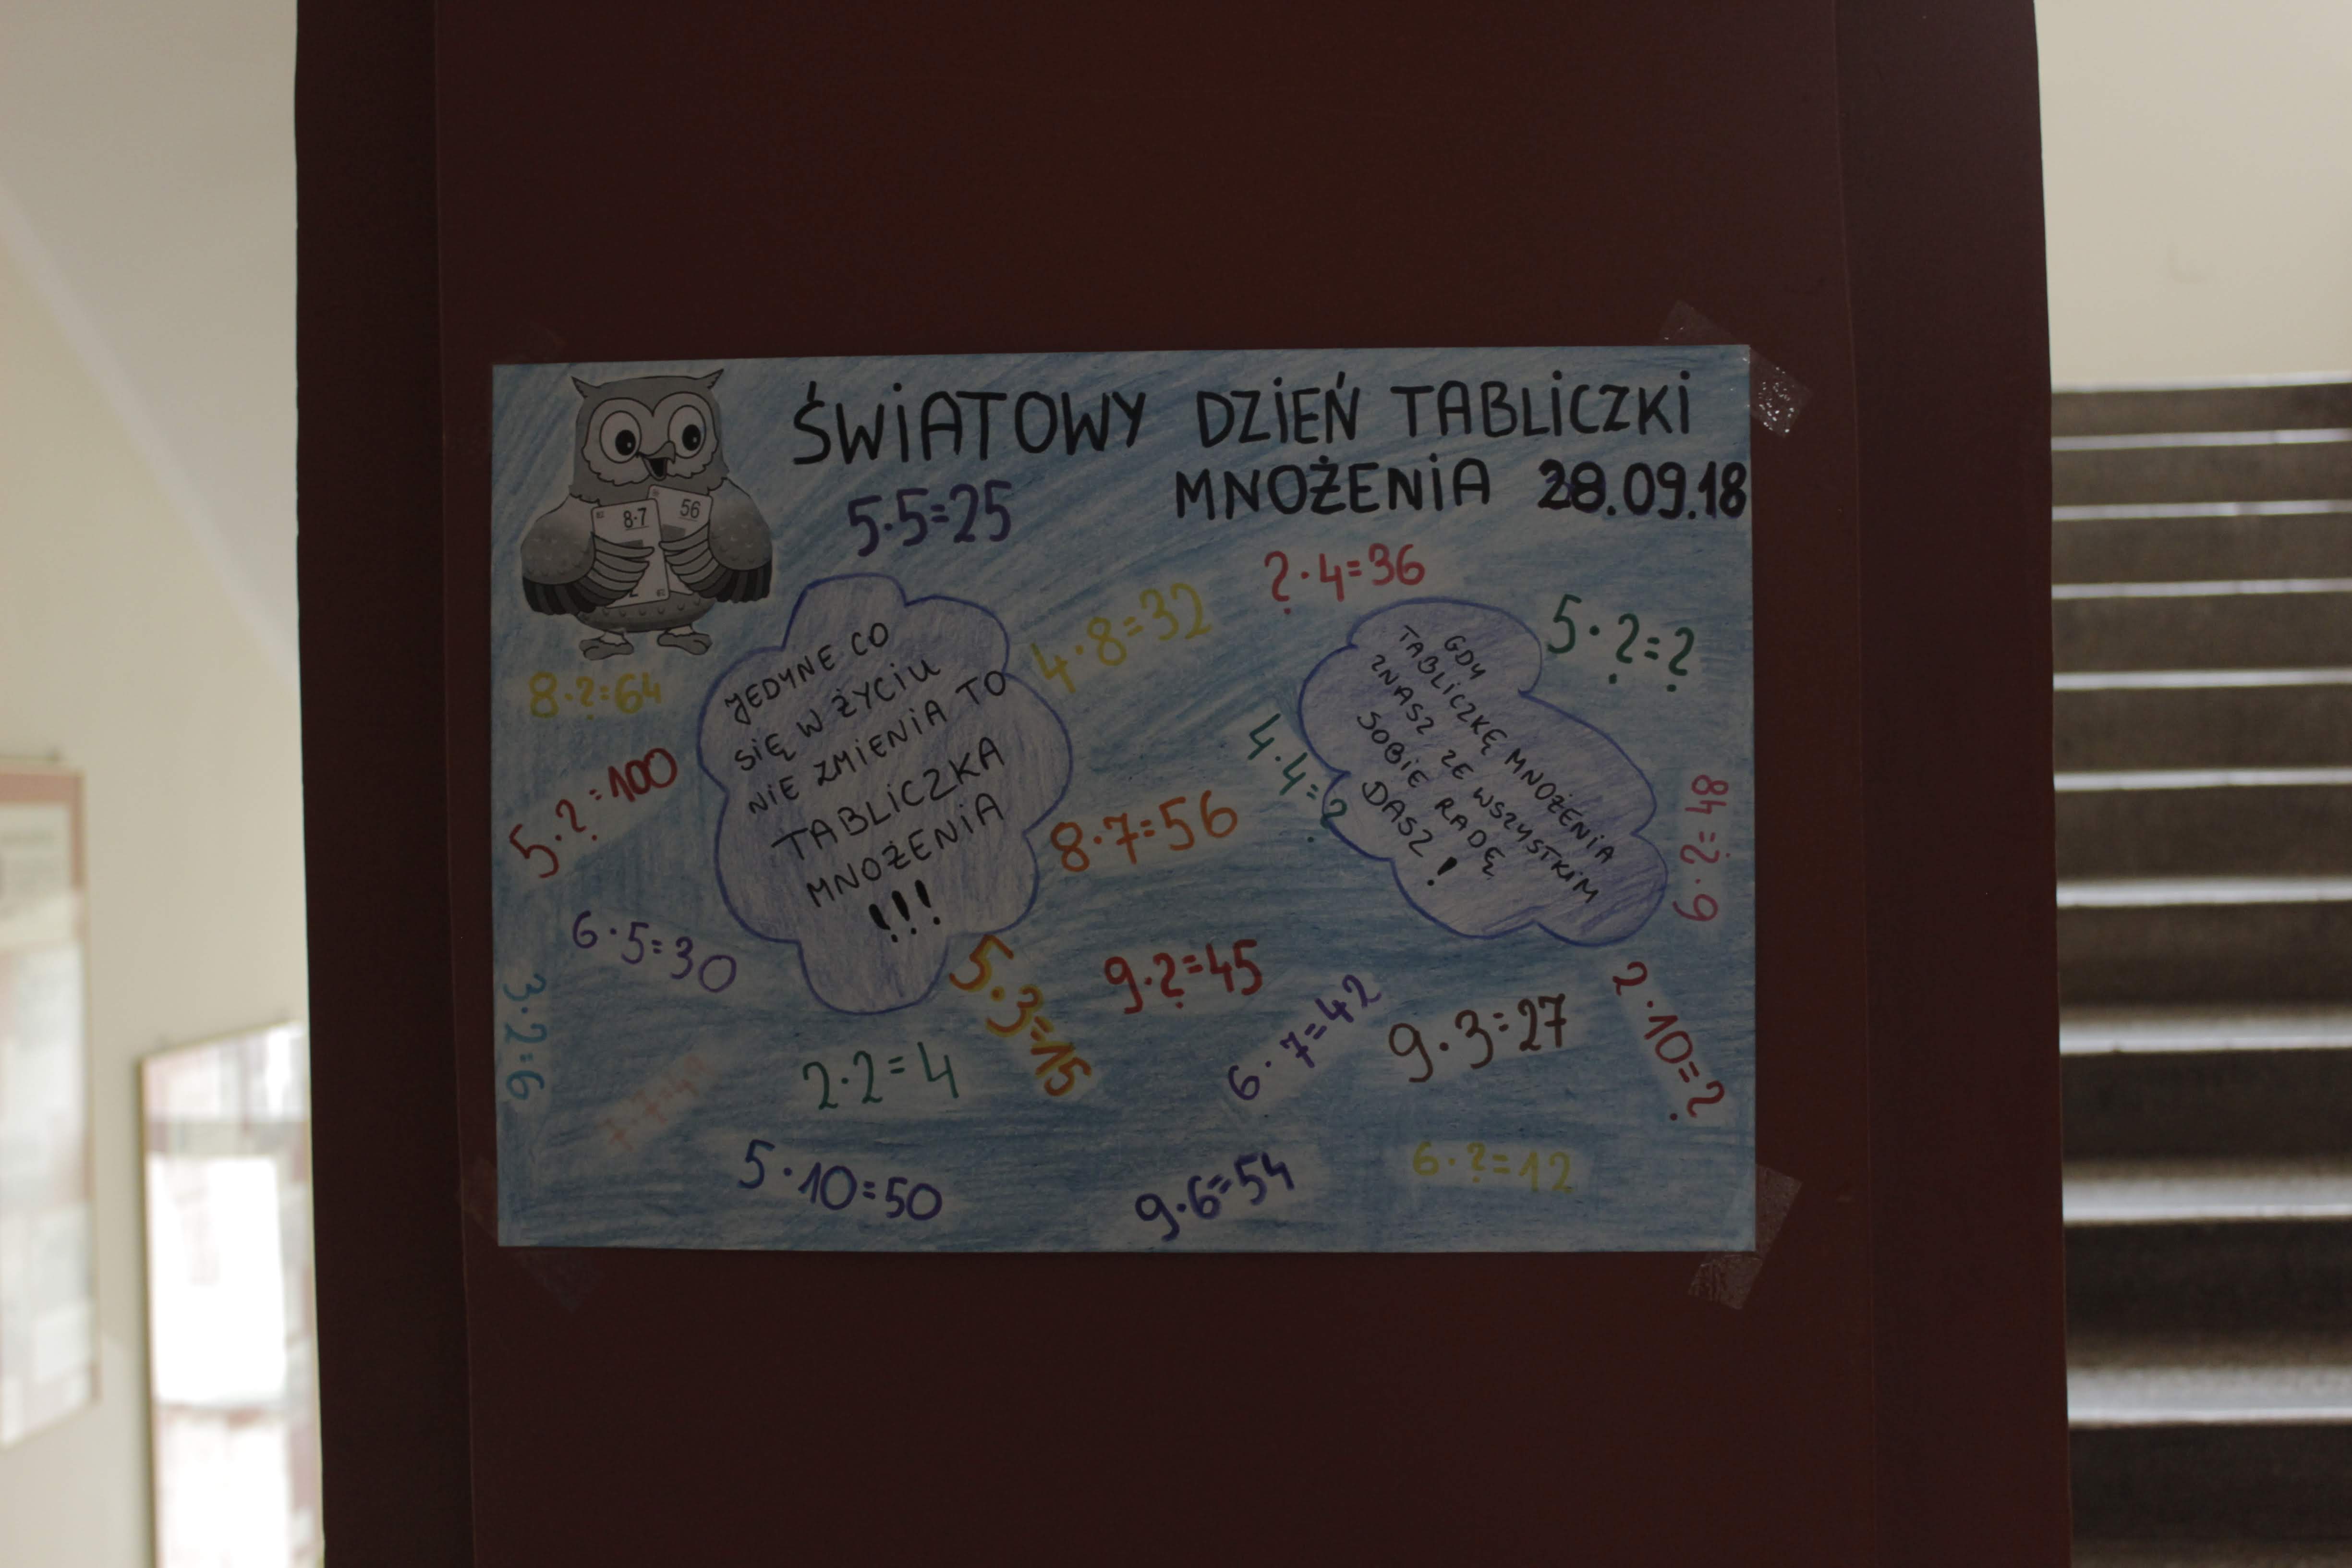 ŚWIATOWY DZIEŃ TABLICZKI
MNOŻENIA 28.09.18
5·5=25
8·7
56
?·4=36
4·8=32
5·?=?
8·?=64
JEDYNE CO
SIĘ W ŻYCIU
NIE ZMIENIA TO
TABLICZKA
MNOŻENIA
!!!
GDY
TABLICZKĘ MNOŻENIA
ZNASZ ZE WSZYSTKIM
SOBIE RADĘ
DASZ!
4·4=?
5·?=100
8·7=56
6·?=48
6·5=30
5·3=15
9·?=45
6·7=42
9·3=27
2·10=?
3·2=6
7·7=49
2·2=4
5·10=50
9·6=54
6·?=12